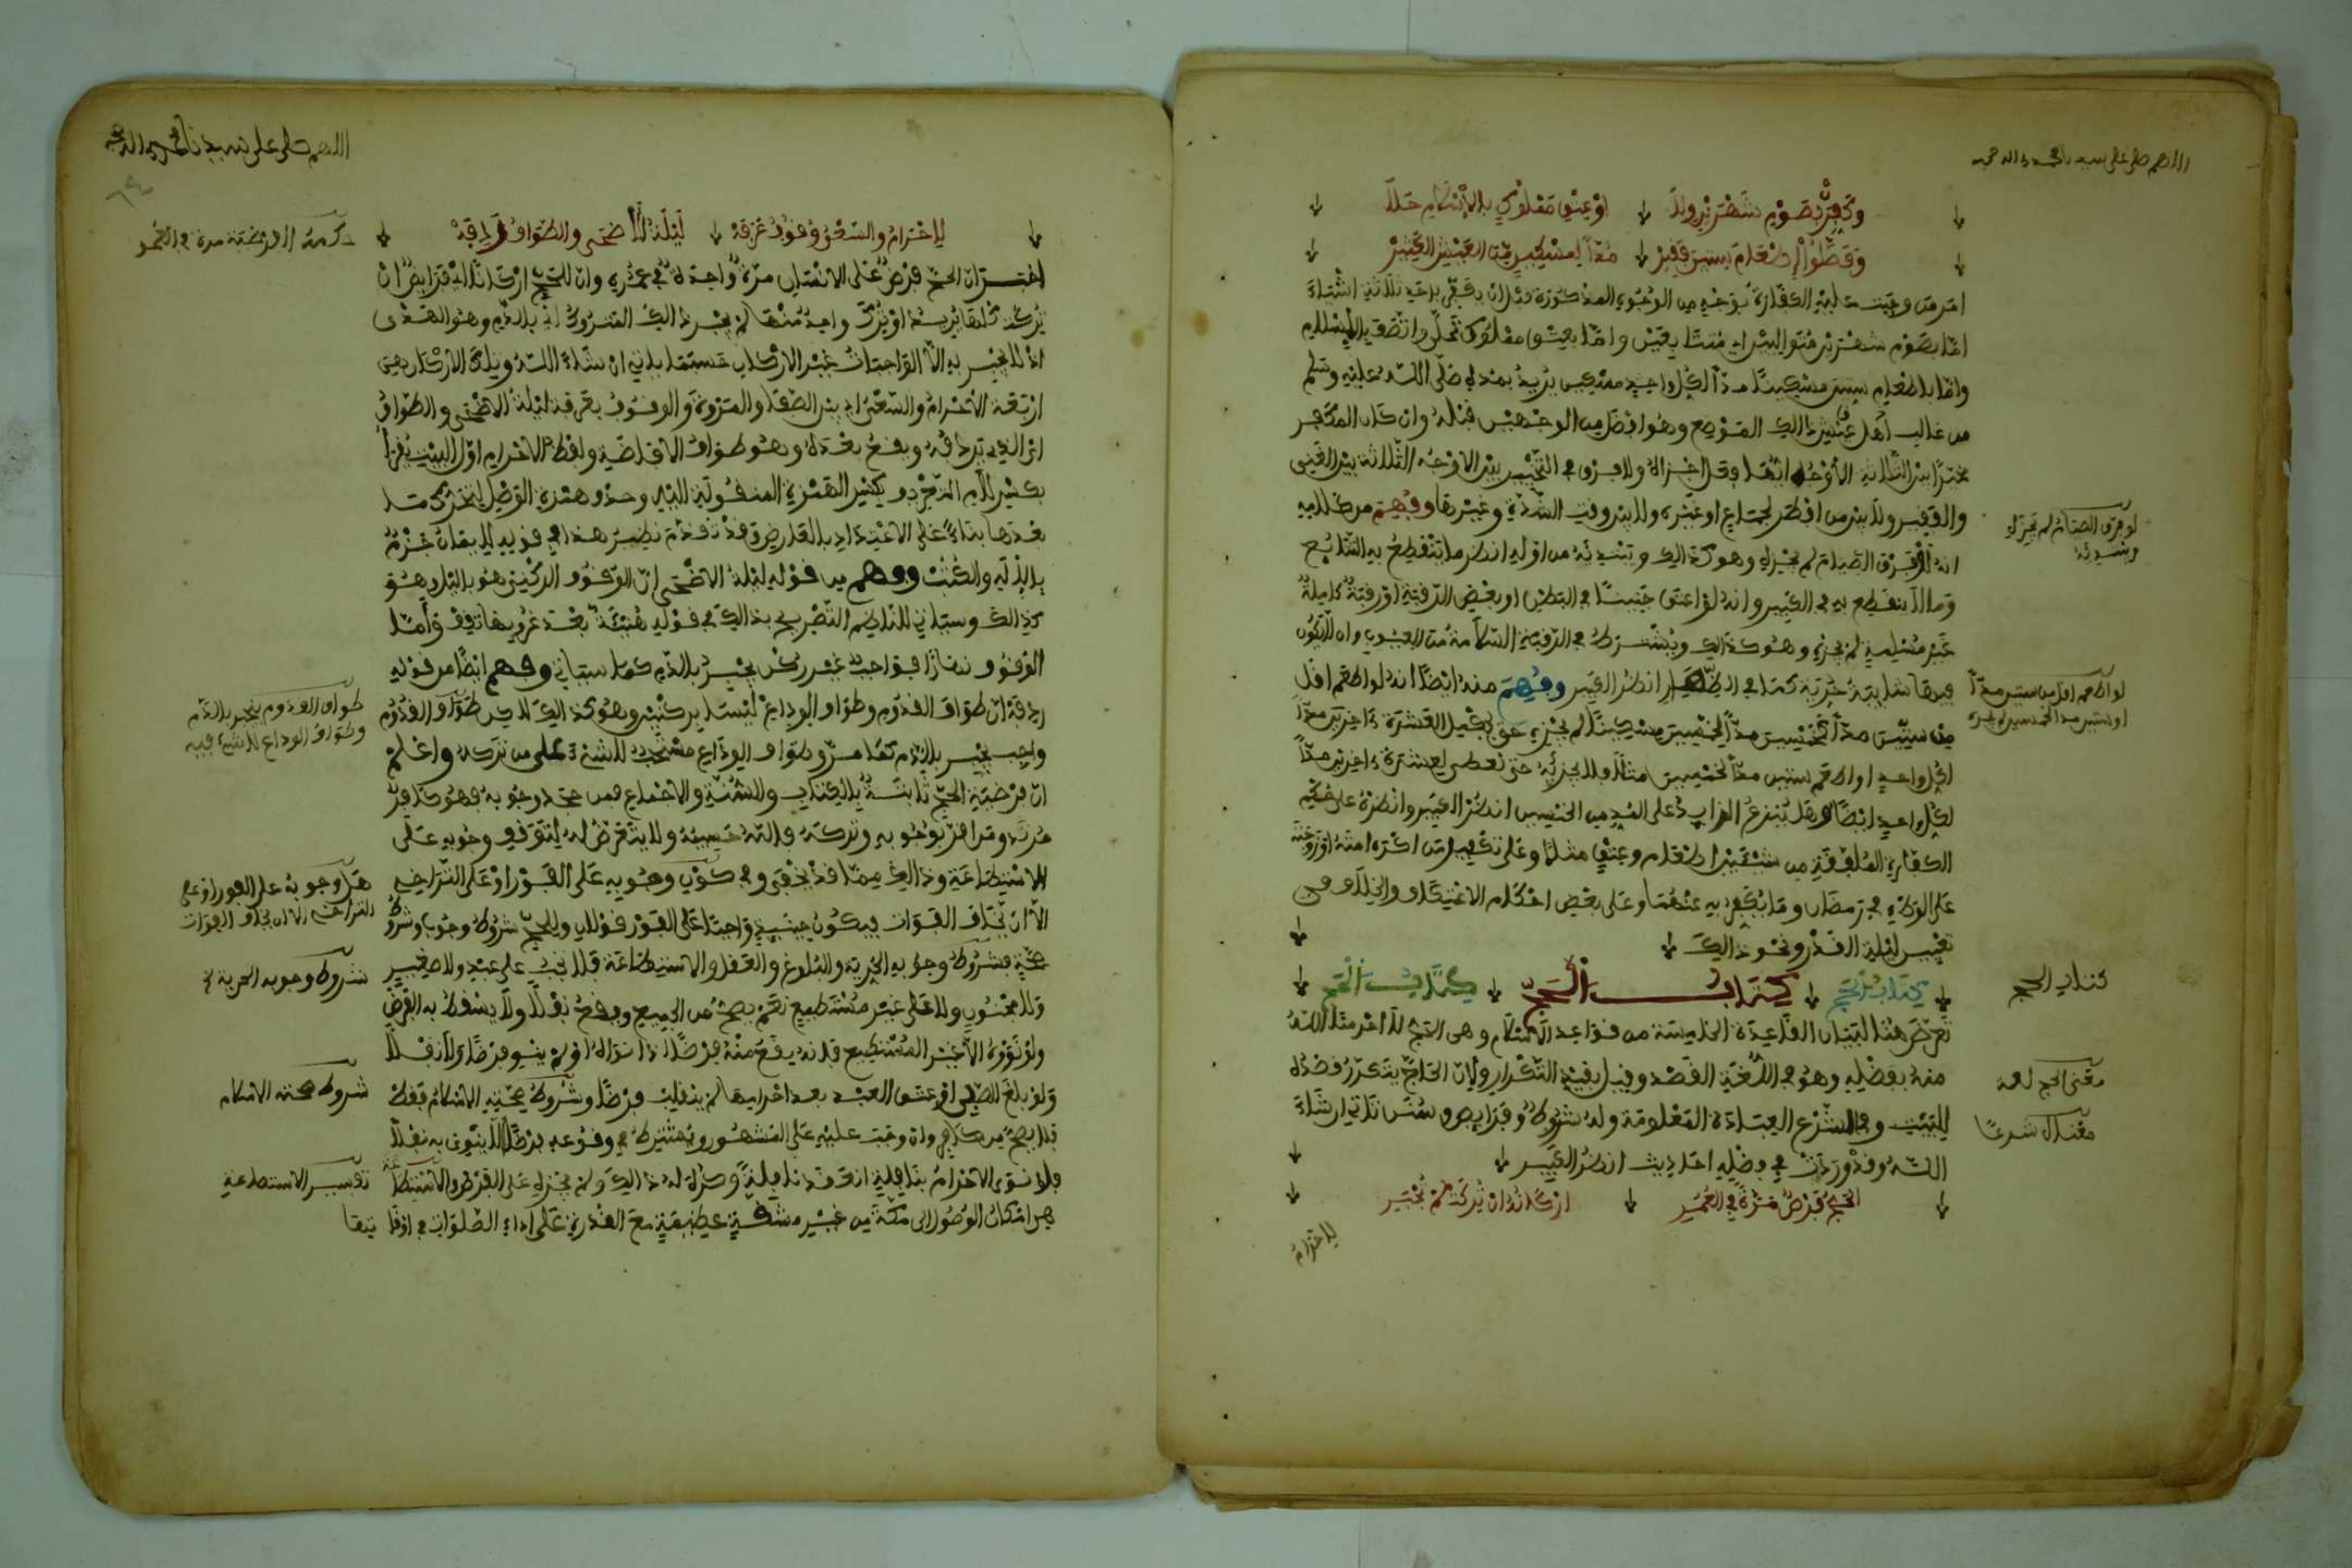 اللهم صل على سيدنا محمد وءاله وصحبه
وكفرن بصوم شهرين ولا أو عتق مملوك بالإسلام حلا
وفضلوا إطعام ستين فقير مدا لمسكين من العيش الكثير
أخبر من وجبت عليه الكفارة بوجه من الوجوه المذكورة قبل أن يكفر بأحد ثلاثة أشياء
إما بصوم شهرين متوالين متتابعين وإما بعتق مملوك تحلى واتصف بالإسلام
وإما بإطعام ستين مسكينا مدا لكل واحد مسكين يريد بمده صلى الله عليه وسلم
من غالب أهل عيش ذالك الموضع وهو أفضل من الوجهين قبله وإن كان المكفر
مخيرا بين الثلاثة الأوجه أيها فعل أجزاه ولا فرق في التخيير بين الأوجه الثلاثة بين الغني
والفقير ولا بين من أفطر لجماع أو غيره ولا بين وقت الشدة وغيرها وفهم من كلامه
أنه لو فرق الصيام لم يجزه وهو كذالك ويبتدئه من أوله انظر ما ينقطع به التتابع
وما لا ينقطع به في الكبير وأنه لو أعتق جنينا في البطن أو بعض الرقبة أو رقبة كاملة
غير مسلمة لم يجزه وهو كذالك ويشترط في الرقبة السلامة من العيوب وأن لا يكون
فيها شايبة حرية كما في الظهار انظر الكبير وفهم منه أيضا أنه لو أطعم أقل
من ستين مدا كخمسين مدا لخمسين مسكينا لم يجزه حتى يكمل العشرة ءاخرين مدا
لكل واحد أو أطعم ستين مدا لخمسين مثلا فلا يجزئه حتى يعطي لعشرة ءاخرين مدا
لكل واحد أيضا وهل ينزع الزايد على المد من الخمسين انظر الكبير وانظره على حكم
الكفارة الملفقة من شيئين إطعام وعتق مثلا وعلى تكفير من أكره أمته أو زوجته
على الوطء في رمضان وما يكفر به عنهما وعلى بعض أحكام الاعتكاف والخلاف في
تعيين ليلة القدر ونحو ذالك
كتاب الحج كتاب الحج كتاب الحج
تعرض هنا لبيان القاعدة الخامسة من قواعد الإسلام وهي الحج
منه بفضله وهو في اللغة القصد وقيل بقيد التكرار ولأن الحاج يتكرر قصده
للبيت وفي الشرع العبادة المعلومة وله شروط وفرايض وسنن تأتي إن شاء
الله وقد وردت في فضله أحاديث انظر الكبير
الحج فرض مرة في العمر أركانه إن تركت لم تجبر
الإحرام
لو فرق الصيام لم يجزه ويبتدئه
لو أطعم أقل من ستين مدا
أو ستين مدا لخمسين لم يجزه
كتاب الحج
معنى الحج لغة
معناه شرعا
اللهم صل على سيدنا محمد وءاله وصحبه
٦٤
الإحرام والسعي وقوف عرفه ليلة الأضحى والطواف رادفه
أخبر أن الحج فرض على الإنسان مرة واحدة في عمره وأن للحج أركانا أي فرايض إن
تركت كلها أو ترك واحد منها لم يجبر ذالك المتروك أي بالدم وهو الهدي
إذ لا يجبر به إلا الواجبات غير الأركان حسبما يأتي إن شاء الله وتلك الأركان هي
أربعة الإحرام والسعي أي بين الصفا والمروة والوقوف بعرفة ليلة الأضحى والطواف
أي الذي يردفه ويقع بعده وهو طواف الإفاضة ولفظ الإحرام أول البيت يقرأ
بكسر اللام
بعدها بناء على الاعتداد بالعارض وقد تقدم نظير هذا في قوله
وفهم من قوله ليلة الأضحى أن الوقوف الركني هو بالليل وهو
كذالك وسيأتي للناظم التصريح بذالك في قوله هنيئة بعد غروبها تقف وأما
الوقوف نهارا فواجب غير ركن يجبر بالدم كما سيأتي وفهم أيضا من قوله
رادفه أن طواف القدوم وطواف الوداع ليسا بركنين وهو كذالك لاكن طواف القدوم
واجب يجبر بالدم كما مر وطواف الوداع مستحب لا شيء على من تركه واعلم
أن فرضية الحج ثابتة بالكتاب والسنة والإجماع فمن جحد وجوبه فهو كافر
مرتد ومن أقر بوجوبه وتركه فالله حسيبه ولا يتعرض له لتوقف وجوبه على
الاستطاعة وذالك مما قد يخفى وفي كون وجوبه على الفور أو على التراخي
إلا أن يخاف الفوات فيكون حينئذ واجبا على الفور قولان وللحج شروط وجوب وشروط
صحة فشروط وجوبه الحرية والبلوغ والعقل والاستطاعة فلا يجب على عبد ولا صغير
ولا مجنون ولا على غير مستطيع نعم يصح من الجميع ويقع نفلا ولا يسقط به الفرض
ولو نووه إلا غير المستطيع فإنه يقع منه فرضا إذا نواه أو لم ينو فرضا ولا نفلا
ولو بلغ الصبي أو عتق العبد بعد إحرامهما لم ينقلب فرضا وشروط صحته الإسلام فقط
فلا يصح من كافر وإن وجبت عليه على المشهور ويشترط في وقوعه فرضا ألا ينوي به نفلا
فلو نوى الإحرام بنافلة انعقد نافلة وكره له ذالك ولم يجزه على الفرض والاستطاعة
هي إمكان الوصول إلى مكة من غير مشقة عظيمة مع القدرة على أداء الصلوات في أوقاتها
طواف القدوم ينجبر بالدم
وطواف الوداع لا شيء فيه
هل وجوبه على الفور أو على
التراخي إلا أن يخاف الفوات
شروط وجوبه الحرية الخ
شروط صحته الإسلام
تفسير الاستطاعة